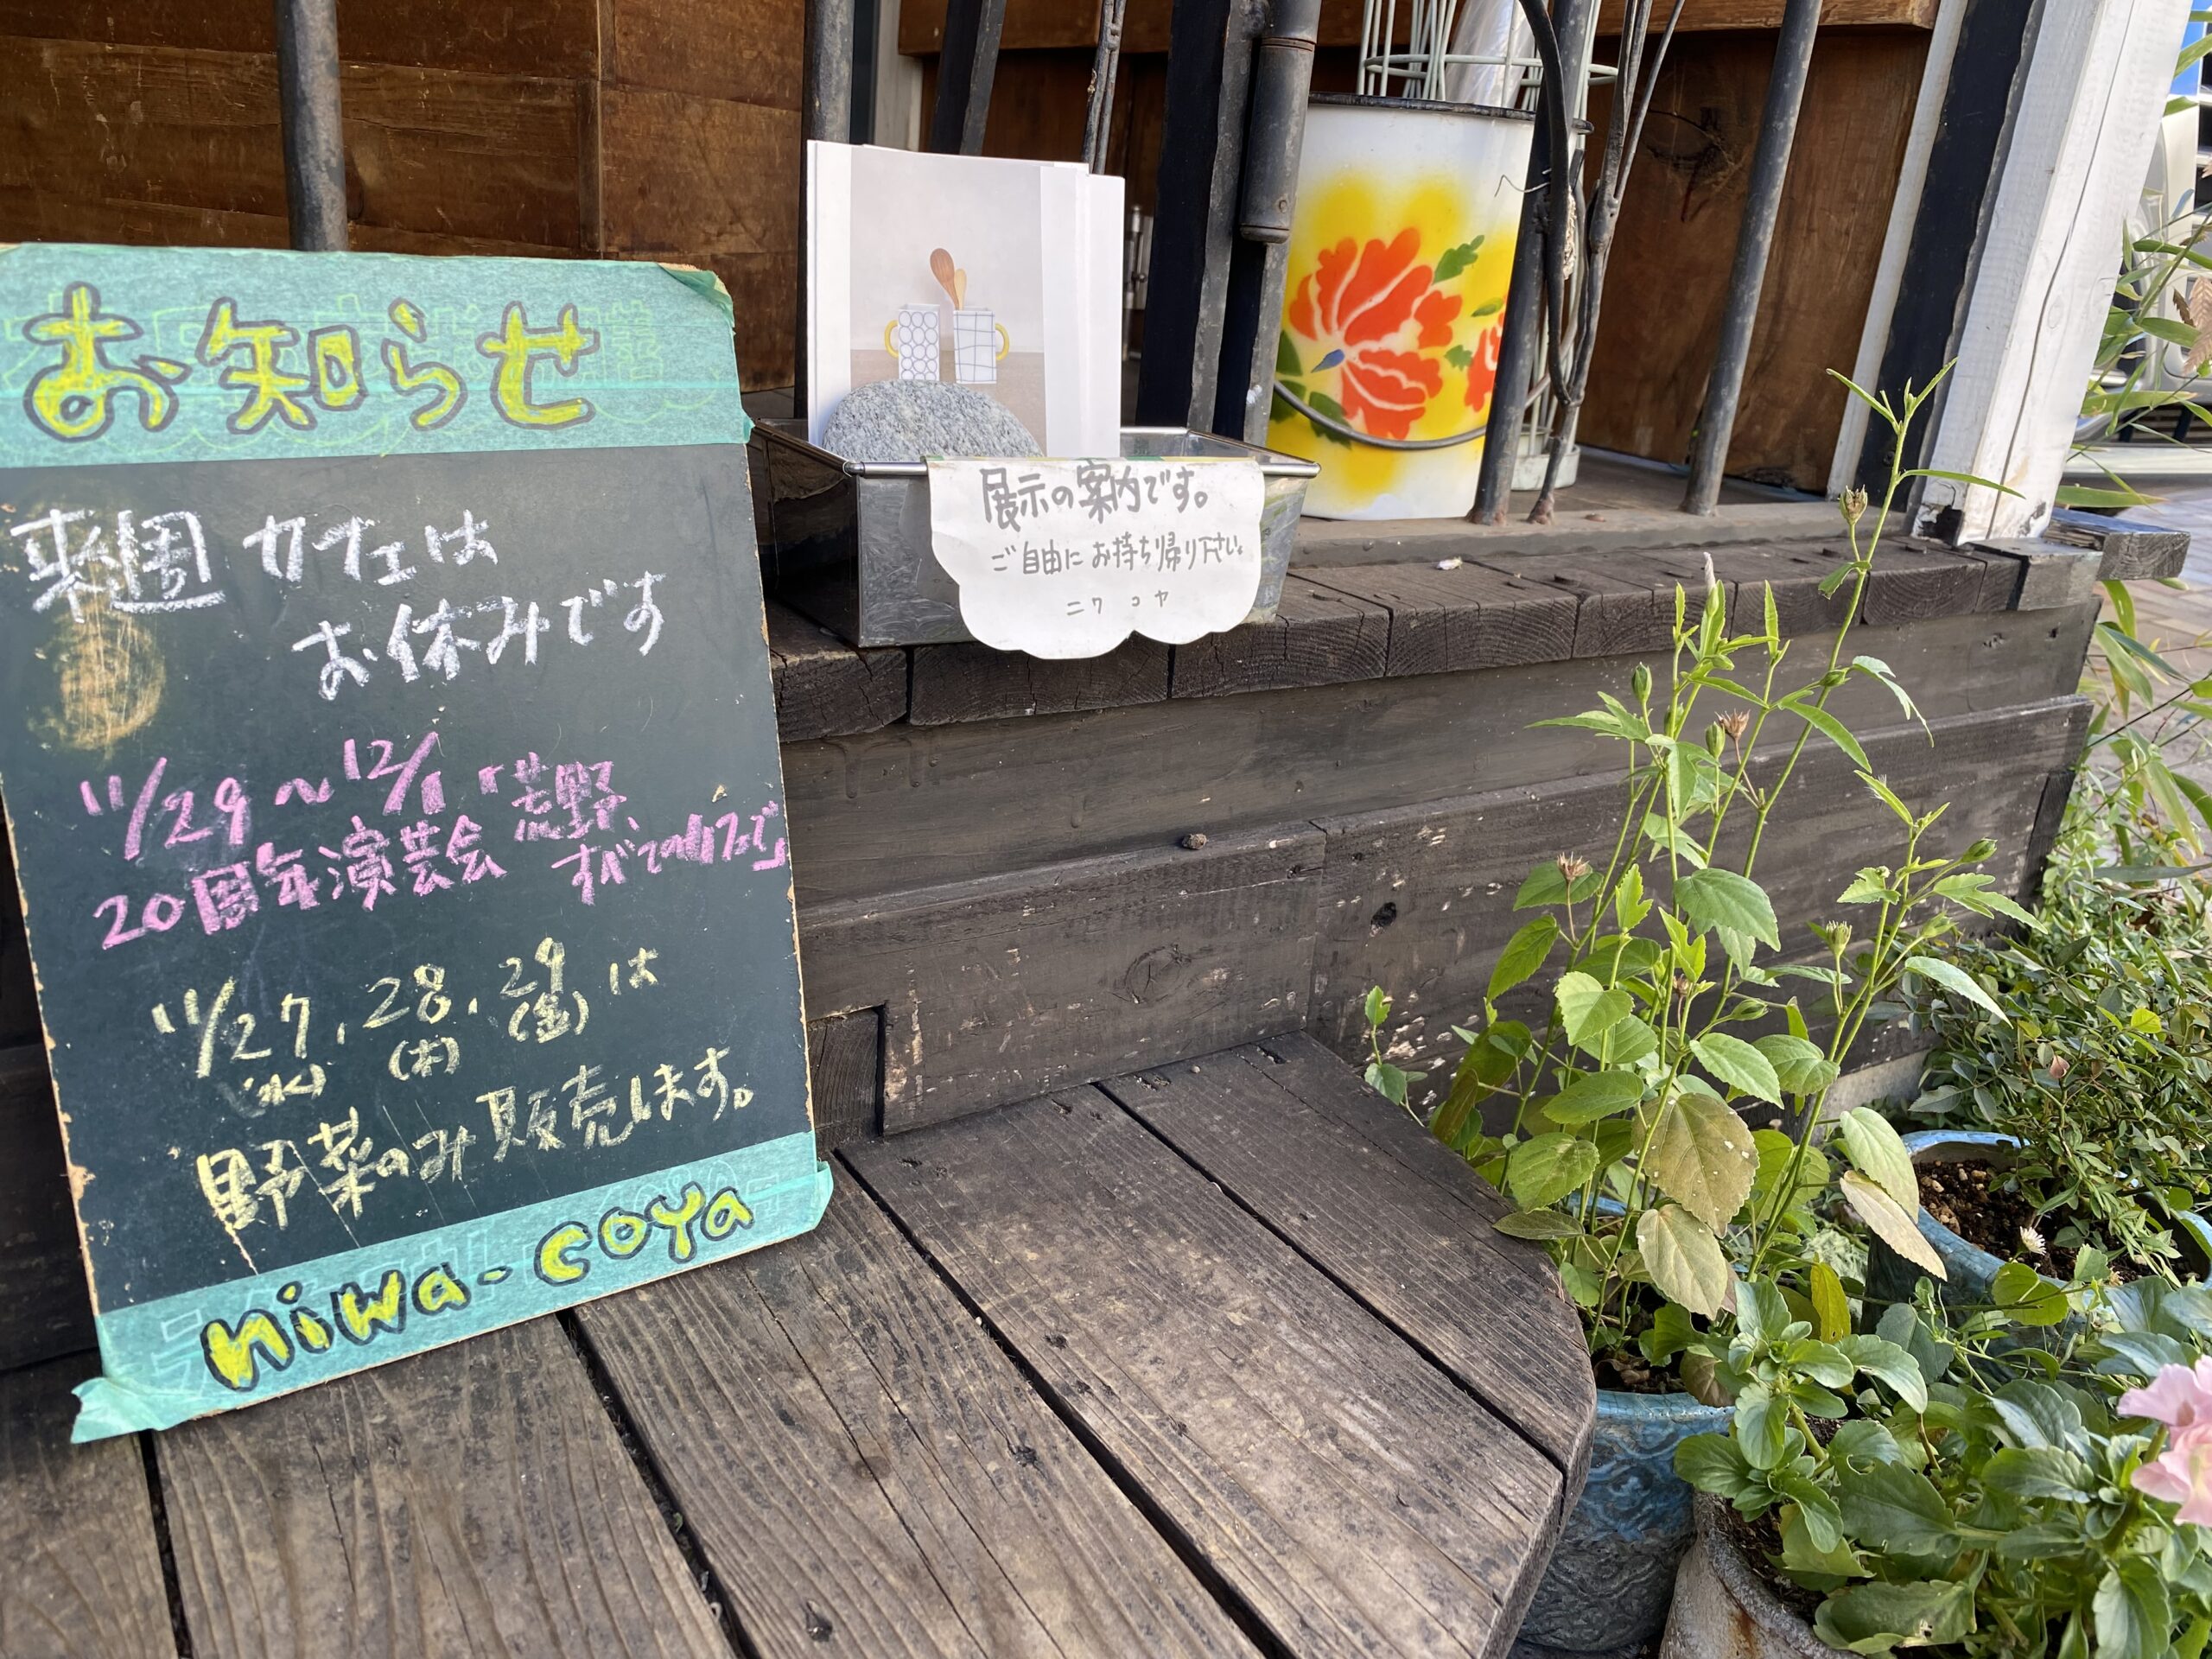 お知らせ
来週 カフェは
お休みです
11/29〜12/1「荒野、
20周年演芸会 すべての
11/27, 28, 29は
(水) (木) (金)
野菜のみ販売します。
niwa-coya
展示の案内です。
ご自由にお持ち帰り下さい。
ニワコヤ